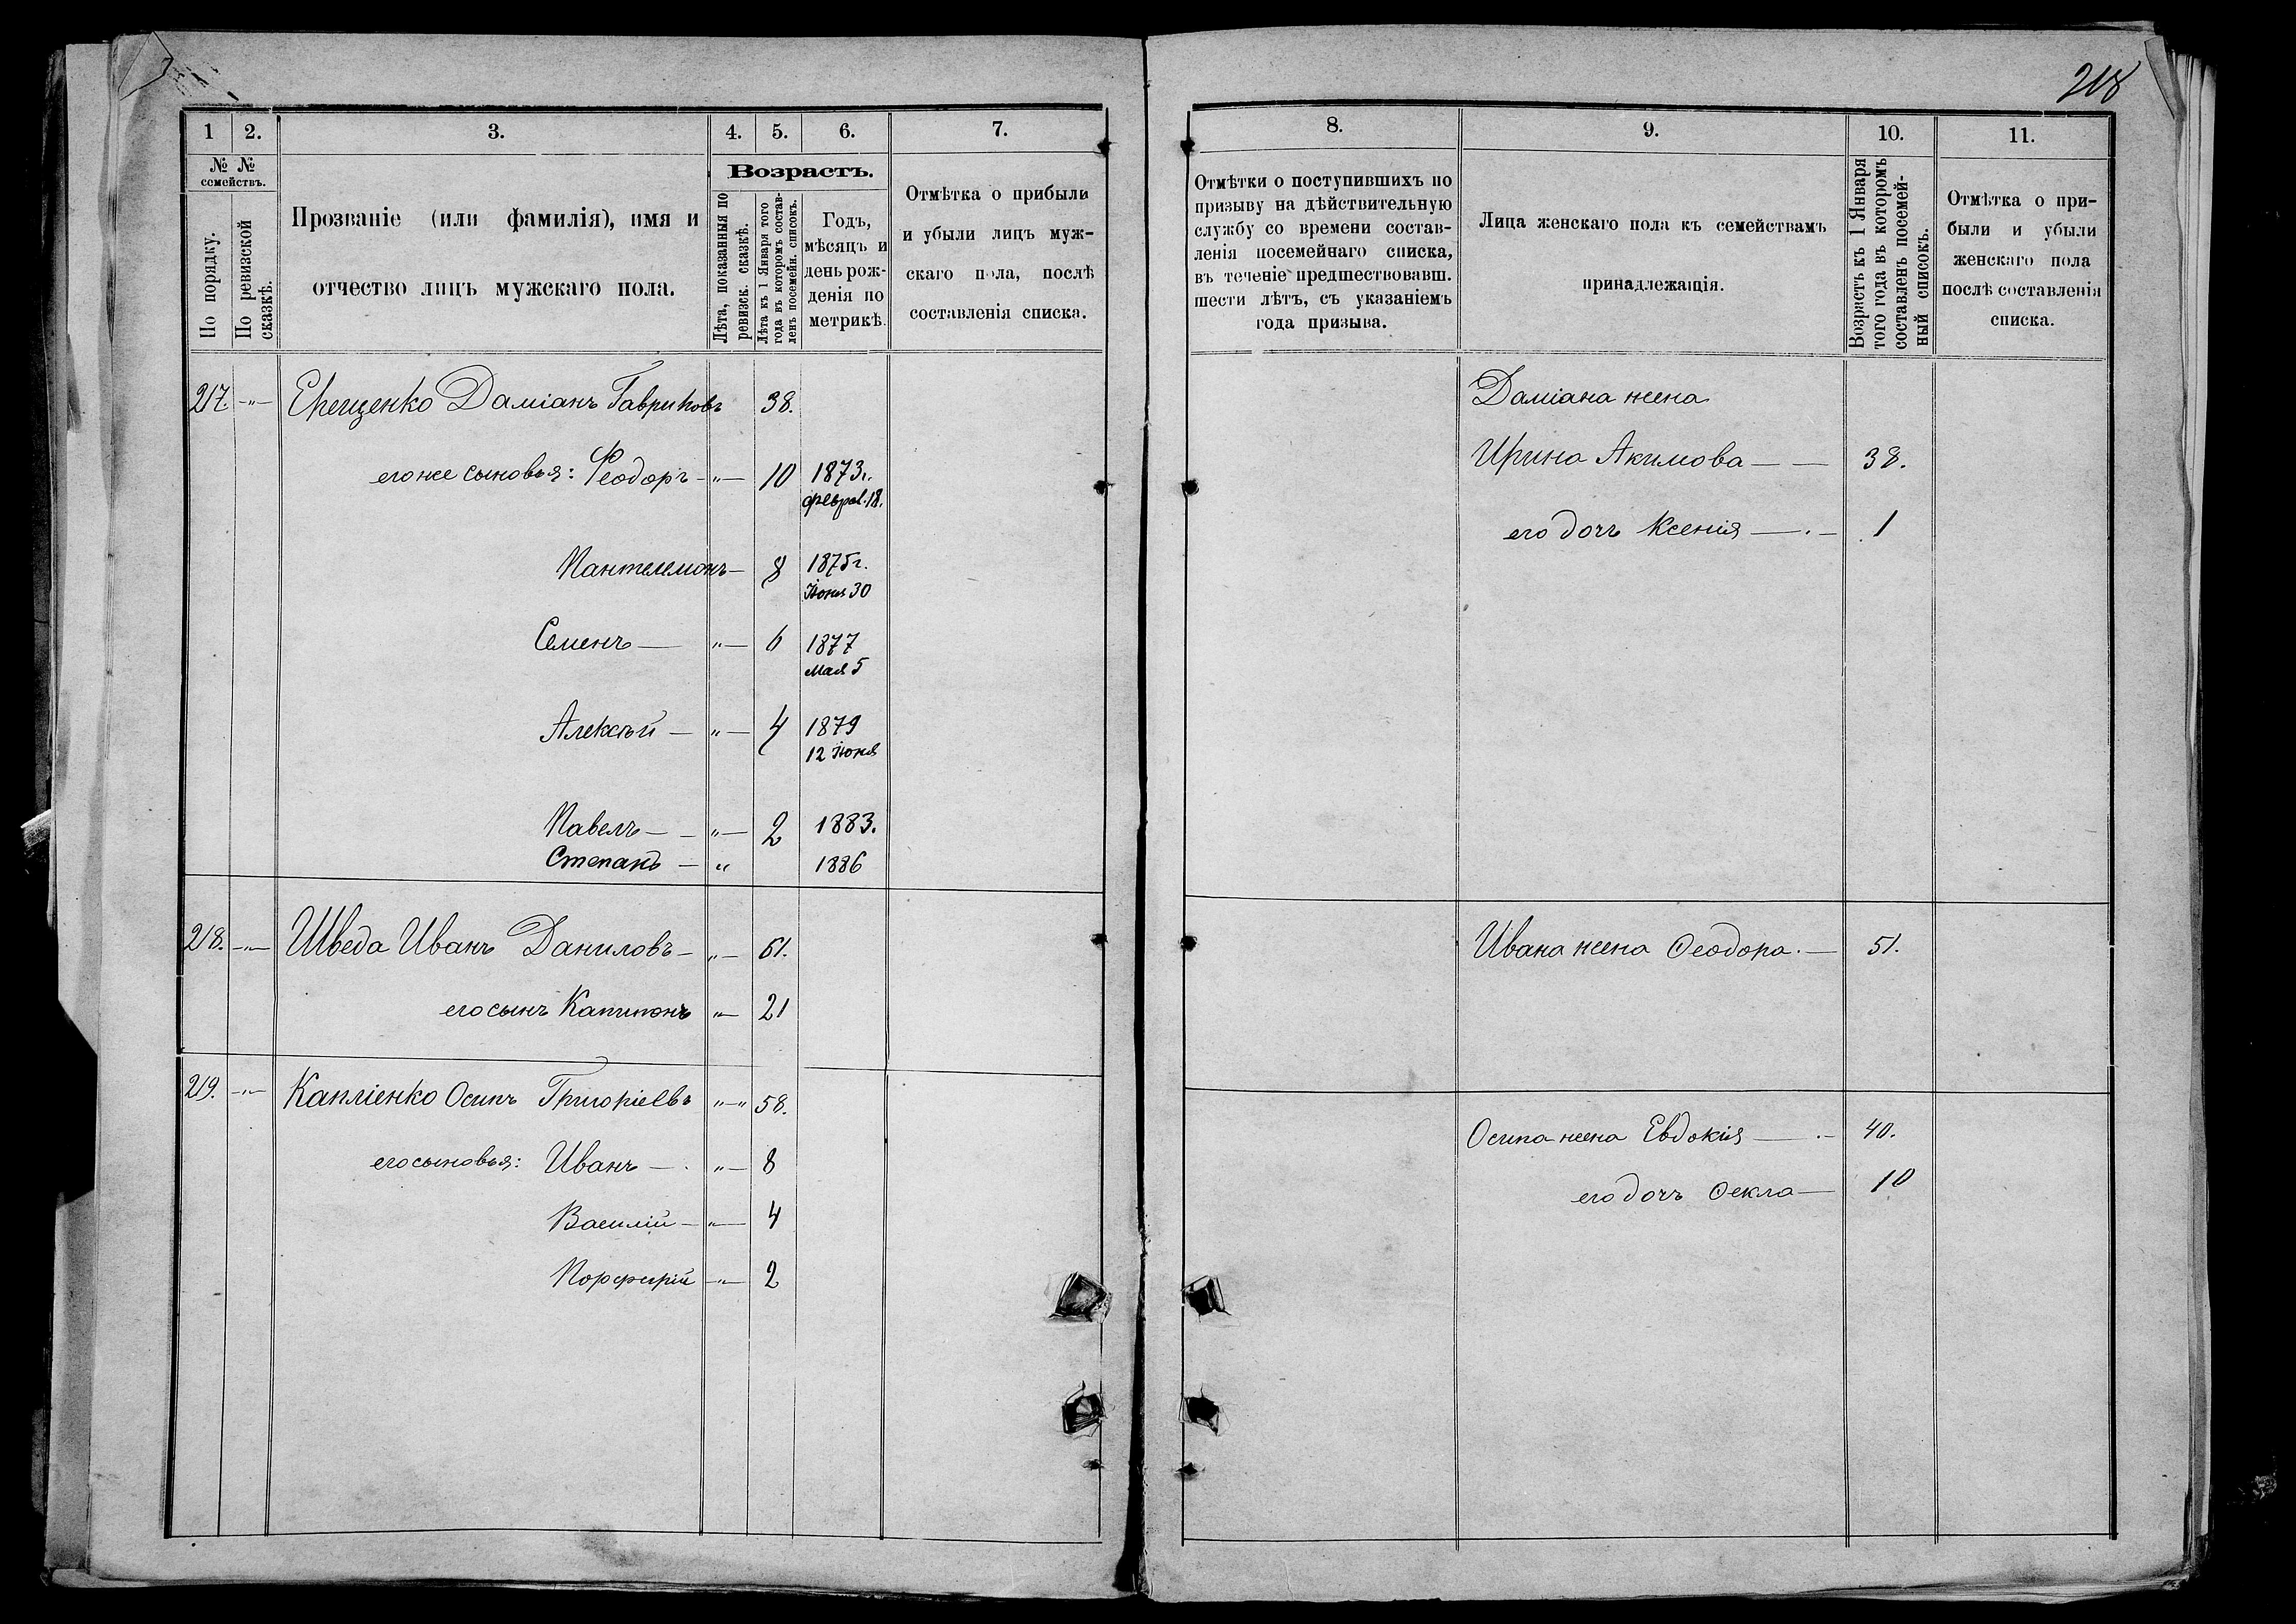 218
1 2. 3. 4. 5. 6. 7.
№ №
семействъ.
По порядку.
По ревизской
сказкѣ.
Прозваніе (или фамилія), имя и
отчество лицъ мужскаго пола.
Возрастъ.
Лѣта, показанныя по
ревизск. сказкѣ.
Лѣта къ 1 Января того
года въ которомъ состав-
ленъ посемейн. списокъ.
Годъ,
мѣсяцъ и
день рож-
денія по
метрикѣ.
Отмѣтка о прибыли
и убыли лицъ муж-
скаго пола, послѣ
составленія списка.
217 Ерещенко Даміанъ Гавриловъ 38.
его же сыновья: Феодоръ — " — 10 1873г.
феврал. 18.
Пантелемонъ — 8 1875г.
Іюня 30
Семенъ — " — 6 1877
мая 5
Алексѣй — " — 4 1879
12 Іюня
Павелъ — " — 2 1883.
Степанъ — " 1886
218. — " — Шведа Иванъ Даниловъ — " — 61.
его сынъ Капитонъ " — 21
219. — " — Капліенко Осипъ Григоріевъ " — " 58.
его сыновья: Иванъ — " — 8
Василій — " — 4
Порфирій — " — 2
8. 9. 10. 11.
Отмѣтки о поступившихъ по
призыву на дѣйствительную
службу со времени состав-
ленія посемейнаго списка,
въ теченіе предшествовавш.
шести лѣтъ, съ указаніемъ
года призыва.
Лица женскаго пола къ семействамъ
принадлежащія.
Возрастъ къ 1 Января
того года въ которомъ
составленъ посемей-
ный списокъ.
Отмѣтка о при-
были и убыли
женскаго пола
послѣ составленія
списка.
Даміана жена
Ирина Акимова — — 38.
его дочь Ксенія — . — 1
Ивана жена Ѳеодора. — 51.
Осипа жена Евдокія — . — 40.
его дочь Ѳекла — 10